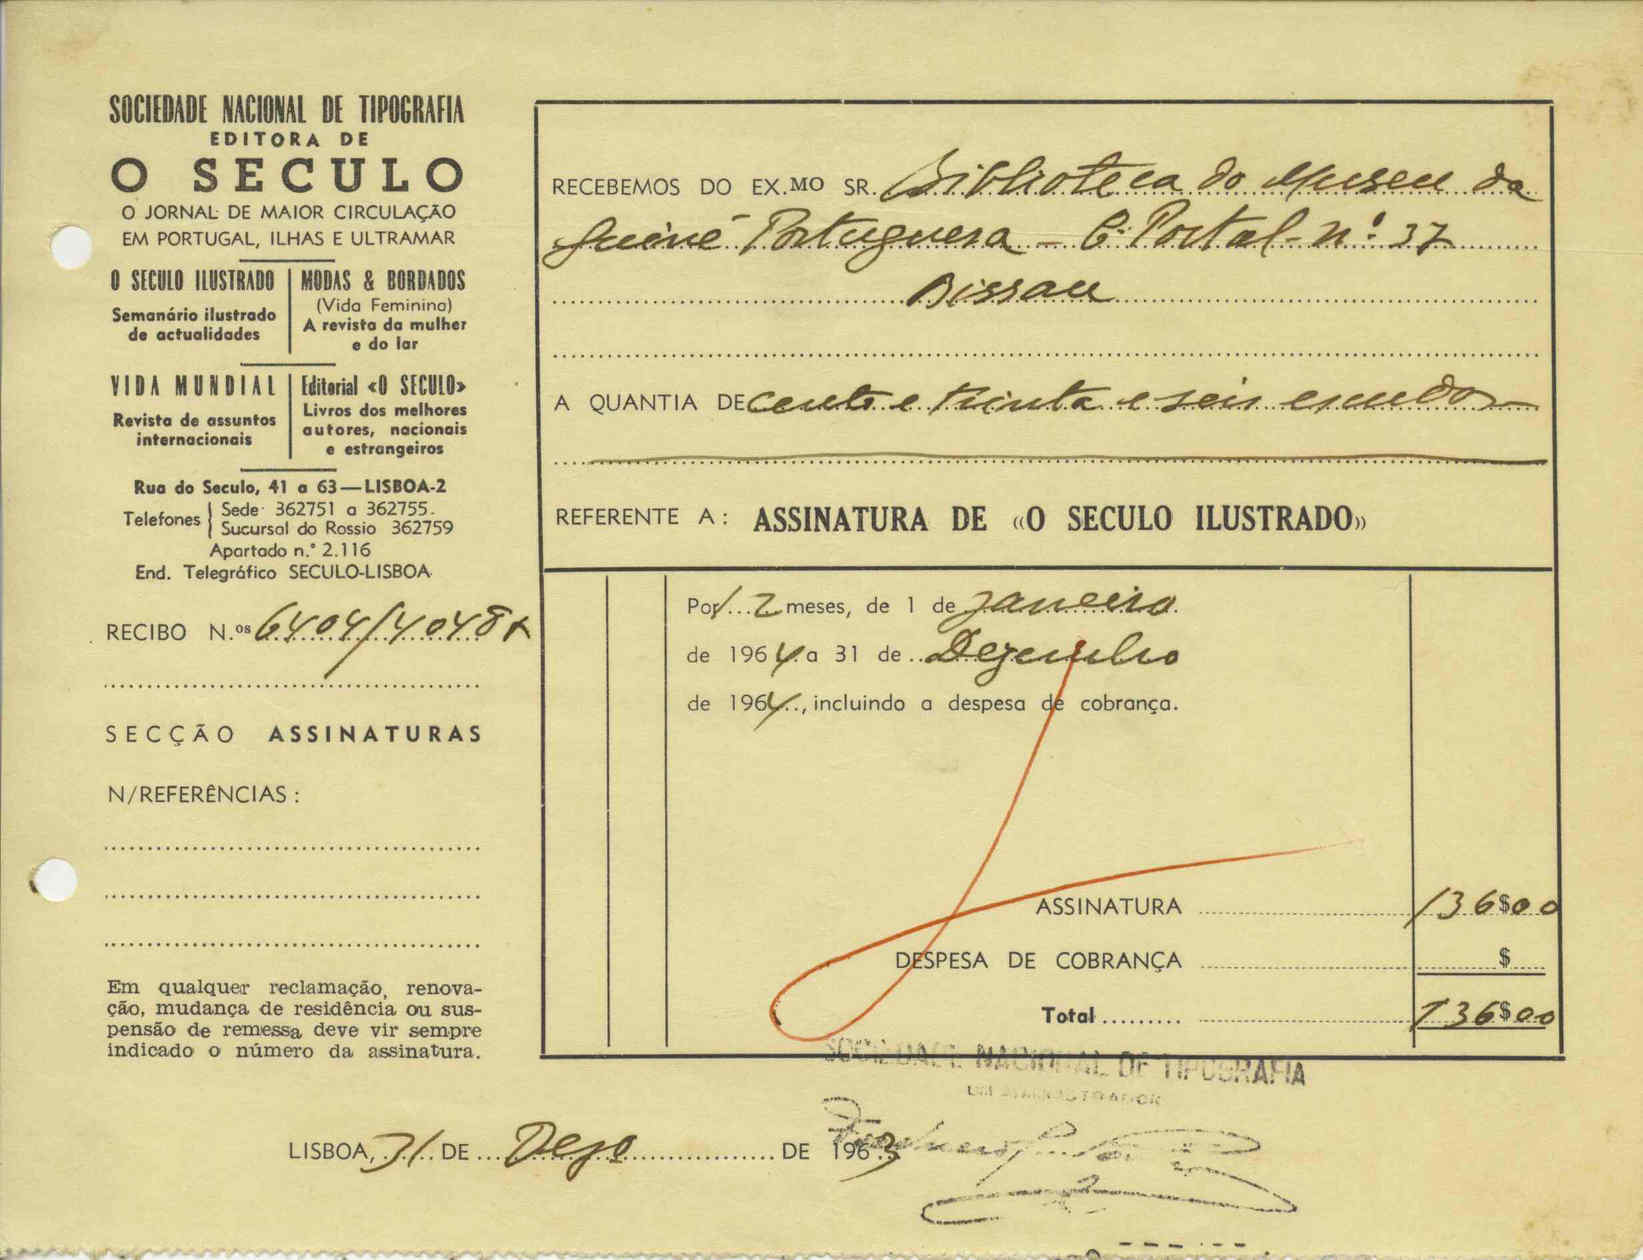 SOCIEDADE NACIONAL DE TIPOGRAFIA
EDITORA DE
O SECULO
O JORNAL DE MAIOR CIRCULAÇÃO
EM PORTUGAL, ILHAS E ULTRAMAR
O SECULO ILUSTRADO
Semanário ilustrado
de actualidades
MODAS & BORDADOS
(Vida Feminina)
A revista da mulher
e do lar
VIDA MUNDIAL
Revista de assuntos
internacionais
Editorial «O SECULO»
Livros dos melhores
autores, nacionais
e estrangeiros
Rua do Seculo, 41 a 63—LISBOA-2
Telefones { Sede 362751 a 362755.
Sucursal do Rossio 362759
Apartado n.° 2.116
End. Telegráfico SECULO-LISBOA
RECIBO N.os 6404/4048
SECÇÃO ASSINATURAS
N/REFERÊNCIAS:
Em qualquer reclamação, renova-
ção, mudança de residência ou sus-
pensão de remessa deve vir sempre
indicado o número da assinatura.
RECEBEMOS DO EX.MO SR. Biblioteca do Museu da
Guiné Portuguesa - C. Postal - nº 37
Bissau
A QUANTIA DE cento e trinta e seis escudos
REFERENTE A: ASSINATURA DE «O SECULO ILUSTRADO»
Por 12 meses, de 1 de Janeiro
de 1964 a 31 de Dezembro
de 1964, incluindo a despesa de cobrança.
ASSINATURA 136$00
DESPESA DE COBRANÇA $
Total 136$00
SOCIEDADE NACIONAL DE TIPOGRAFIA
UM ADMINISTRADOR
LISBOA, 31 DE Dezº DE 1963